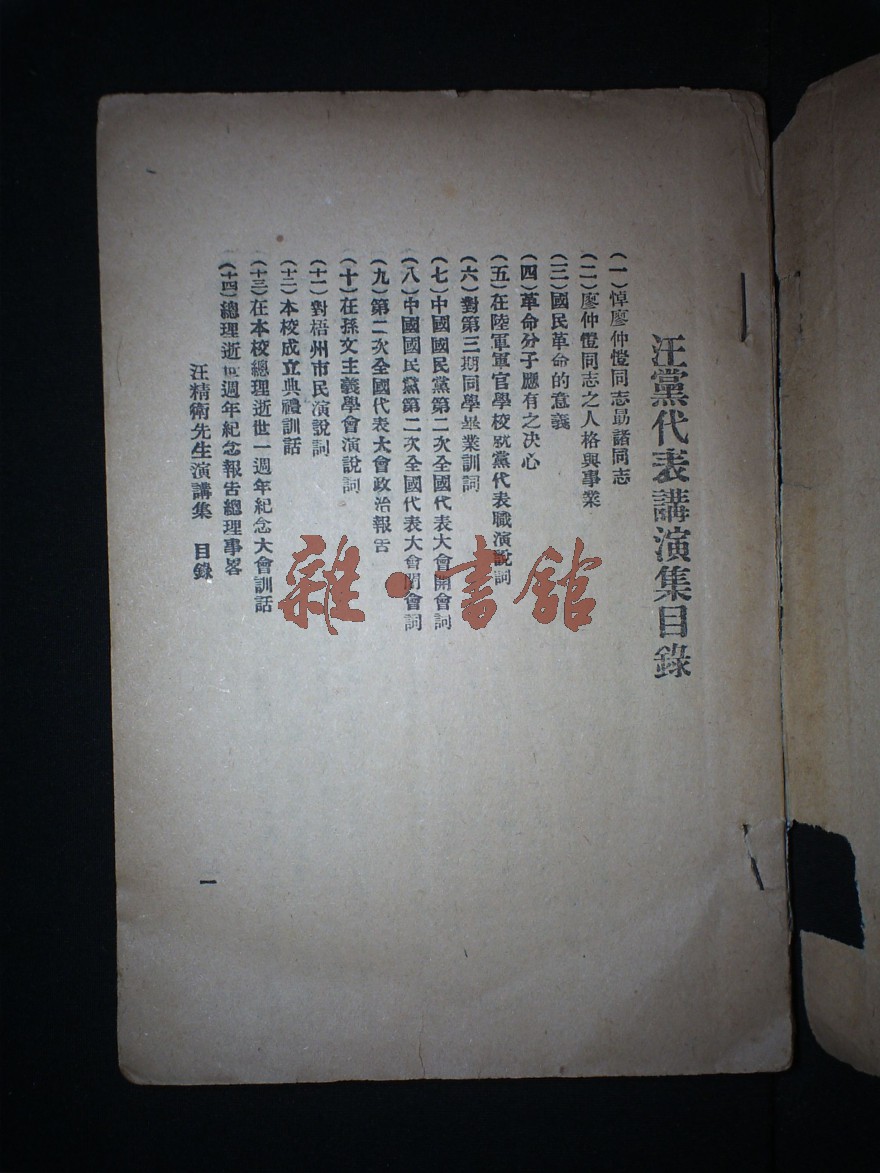 汪黨代表講演集目錄
(一)悼廖仲愷同志勗諸同志
(二)廖仲愷同志之人格與事業
(三)國民革命的意義
(四)革命分子應有之決心
(五)在陸軍軍官學校就黨代表職演說詞
(六)對第三期同學畢業訓詞
(七)中國國民黨第二次全國代表大會開會詞
(八)中國國民黨第二次全國代表大會閉會詞
(九)第二次全國代表大會政治報告
(十)在孫文主義學會演說詞
(十一)對梧州市民演說詞
(十二)本校成立典禮訓話
(十三)在本校總理逝世一週年紀念大會訓話
(十四)總理逝世週年紀念報告總理事畧
汪精衛先生演講集 目錄
一
雜·書館